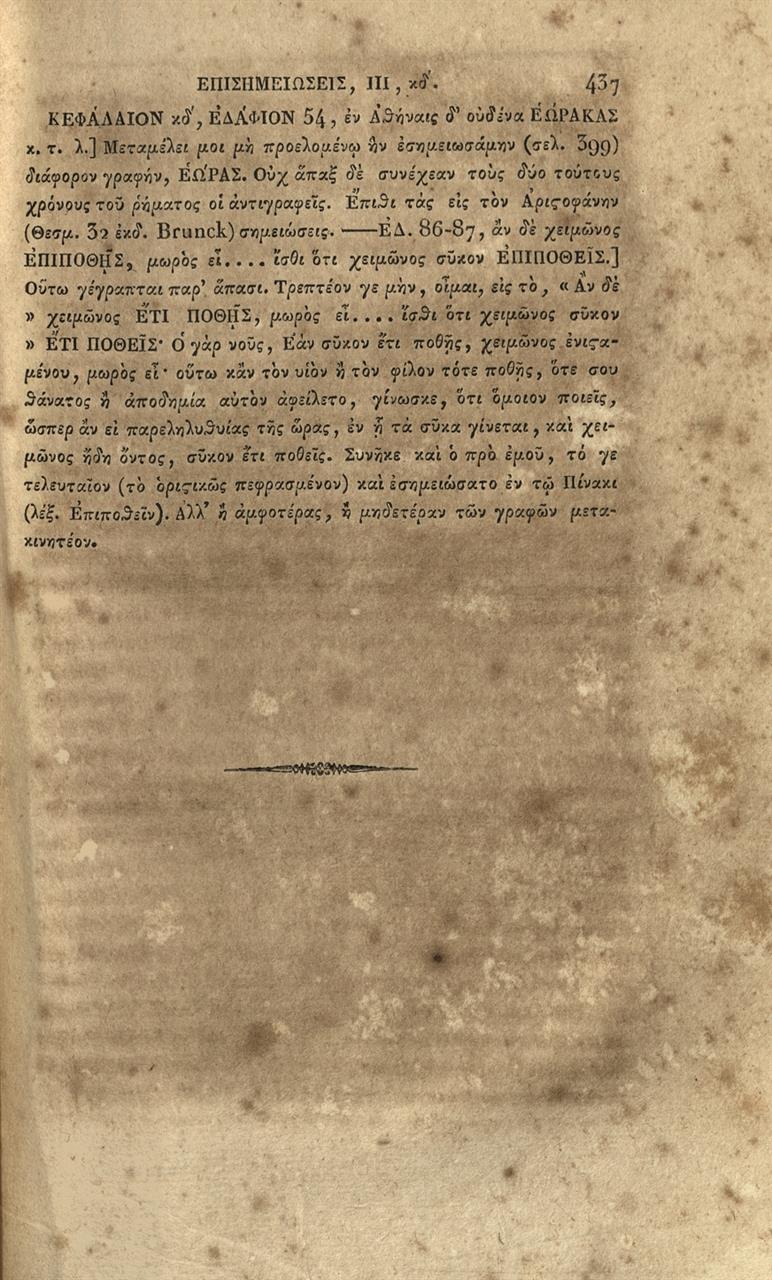 ΕΠΙΣΗΜΕΙΩΣΕΙΣ, III, κδʹ. 437
ΚΕΦΑΛΑΙΟΝ κδʹ, ἘΔΆΦΙΟΝ 54, ἐν Ἀθήναις δʼ οὐδένα ἙΏΡΑΚΑΣ
κ. τ. λ.] Μεταμέλει μοι μὴ προελομένῳ ἣν ἐσημειωσάμην (σελ. 399)
διάφορον γραφήν, ἙΏΡΑΣ. Οὐχ ἅπαξ δὲ συνέχεαν τοὺς δύο τούτους
χρόνους τοῦ ῥήματος οἱ ἀντιγραφεῖς. Ἔπιθι τὰς εἰς τὸν Ἀριϛοφάνην
(Θεσμ. 32 ἐκδ. Brunck) σημειώσεις. — ἘΔ. 86-87, ἂν δὲ χειμῶνος
ἘΠΙΠΟΘΗ͂ΙΣ, μωρὸς εἶ.... ἴσθι ὅτι χειμῶνος σῦκον ἘΠΙΠΟΘΕΙ͂Σ.]
Οὕτω γέγραπται παρʼ ἅπασι. Τρεπτέον γε μὴν, οἶμαι, εἰς τὸ, « Ἂν δὲ
» χειμῶνος ἜΤΙ ΠΟΘΗ͂ΙΣ, μωρὸς εἶ.... ἴσθι ὅτι χειμῶνος σῦκον
» ἜΤΙ ΠΟΘΕΙ͂Σ· Ὁ γὰρ νοῦς, Ἐὰν σῦκον ἔτι ποθῇς, χειμῶνος ἐνιϛα-
μένου, μωρὸς εἶ· οὕτω κἂν τὸν υἱὸν ἢ τὸν φίλον τότε ποθῇς, ὅτε σου
θάνατος ἢ ἀποδημία αὐτὸν ἀφείλετο, γίνωσκε, ὅτι ὅμοιον ποιεῖς,
ὥσπερ ἂν εἰ παρεληλυθυίας τῆς ὥρας, ἐν ᾗ τὰ σῦκα γίνεται, καὶ χει-
μῶνος ἤδη ὄντος, σῦκον ἔτι ποθεῖς. Συνῆκε καὶ ὁ πρὸ ἐμοῦ, τό γε
τελευταῖον (τὸ ὁριϛικῶς πεφρασμένον) καὶ ἐσημειώσατο ἐν τῷ Πίνακι
(λέξ. Ἐπιποθεῖν). Ἀλλʼ ἢ ἀμφοτέρας, ἢ μηδετέραν τῶν γραφῶν μετα-
κινητέον.